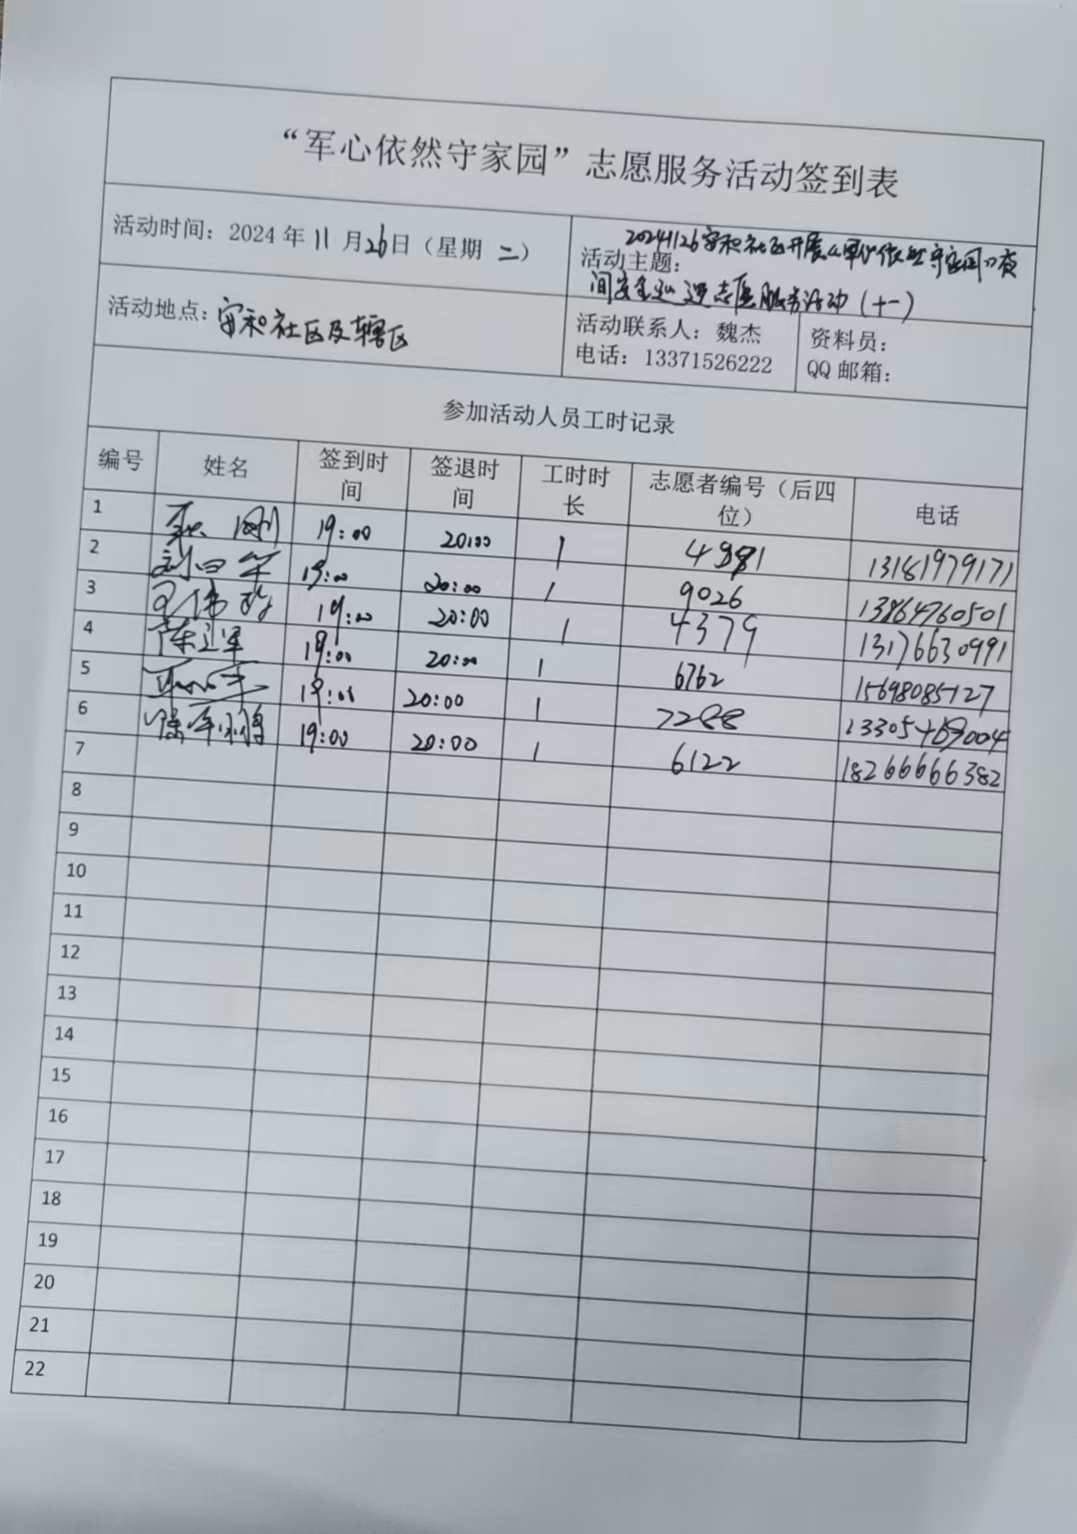 “军心依然守家园”志愿服务活动签到表
活动时间：2024年11月26日（星期 二）
活动主题：
20241126安和社区开展“军心依然守家园”夜
间安全巡逻志愿服务活动（十一）
活动地点：安和社区及辖区
活动联系人：魏杰
电话：13371526222
资料员：
QQ邮箱：
参加活动人员工时记录
编号 姓名 签到时间 签退时间 工时时长 志愿者编号（后四位） 电话
1 19:00 20:00 1 13181979171
2 19:00 20:00 1 9026 13864760501
3 19:00 20:00 1 4379 13176630991
4 19:00 20:00 1 6762 15698085127
5 19:00 20:00 1 7288
6 19:00 20:00 1 6122 18266666382
7
8
9
10
11
12
13
14
15
16
17
18
19
20
21
22